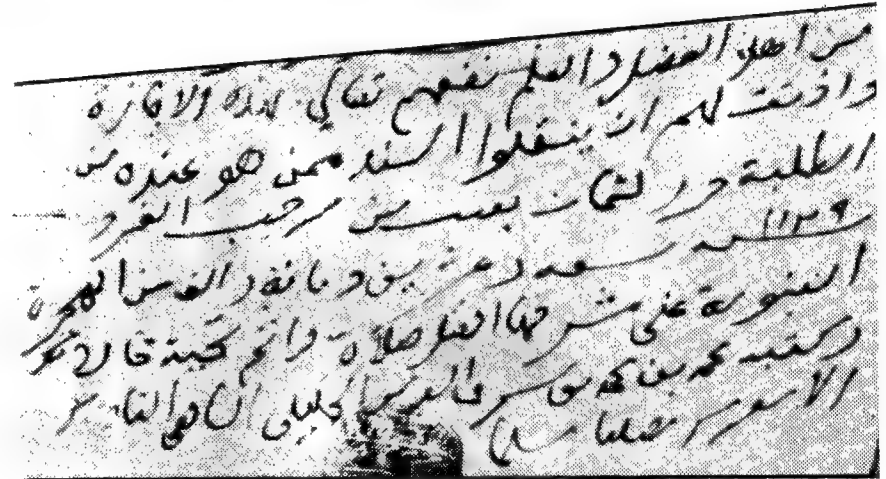 من اهل الفضل والعلم نفعهم تعالى بهذه الاجازة
واذنت لهم ان ينقلوا السند ممن هو عنده من
الطلبة حرر لثمان بقين من رجب الفرد
١١٢٩ سنة تسعة وعشرين ومائة والف من الهجرة
النبوية على مشرفها افضل صلاة واتم تحية قاله
وكتبه محمد بن محمد بن شرف الدين الخليلي الشافعي القادري
الاشعري مصليا مسلما